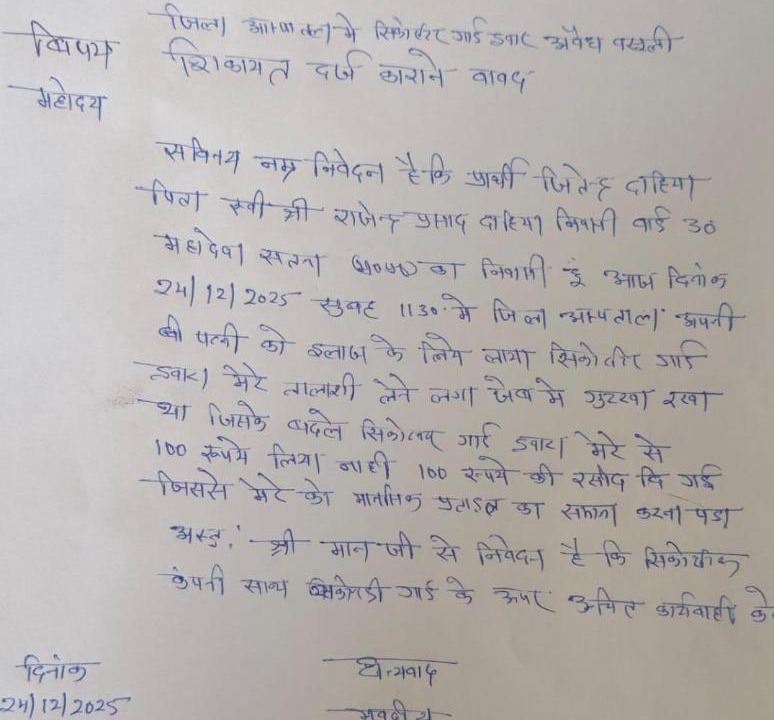 जिला अस्पताल मे सिकोरेट गार्ड द्वारा अवैध वसूली
विषय शिकायत दर्ज कराने वावद
महोदय
सविनय नम्र निवेदन है कि प्रार्थी जितेन्द्र दाहिया
पिता स्वी श्री राजेन्द्र प्रसाद दाहिया निवासी वार्ड 30
महादेवा सतना म०प्र० का निवासी हूं आज दिनांक
24/12/2025 सुबह 1130 मे जिला अस्पताल अपनी
पत्नी को इलाज के लिये लाया सिकोरिटी गार्ड
द्वारा मेरे तालाशी लेने लगा जेब मे गुटखा रखा
था जिसके बदले गार्ड द्वारा मेरे से
100 रूपये लिया नाही 100 रूपये की रसीद दि गई
जिससे मेरे को मानसिक का करना पडा
अस्तु. श्री मान जी से निवेदन है कि
कंपनी साथ गार्ड के ऊपर उचित कार्यवाही के
दिनांक धन्यवाद
24/12/2025